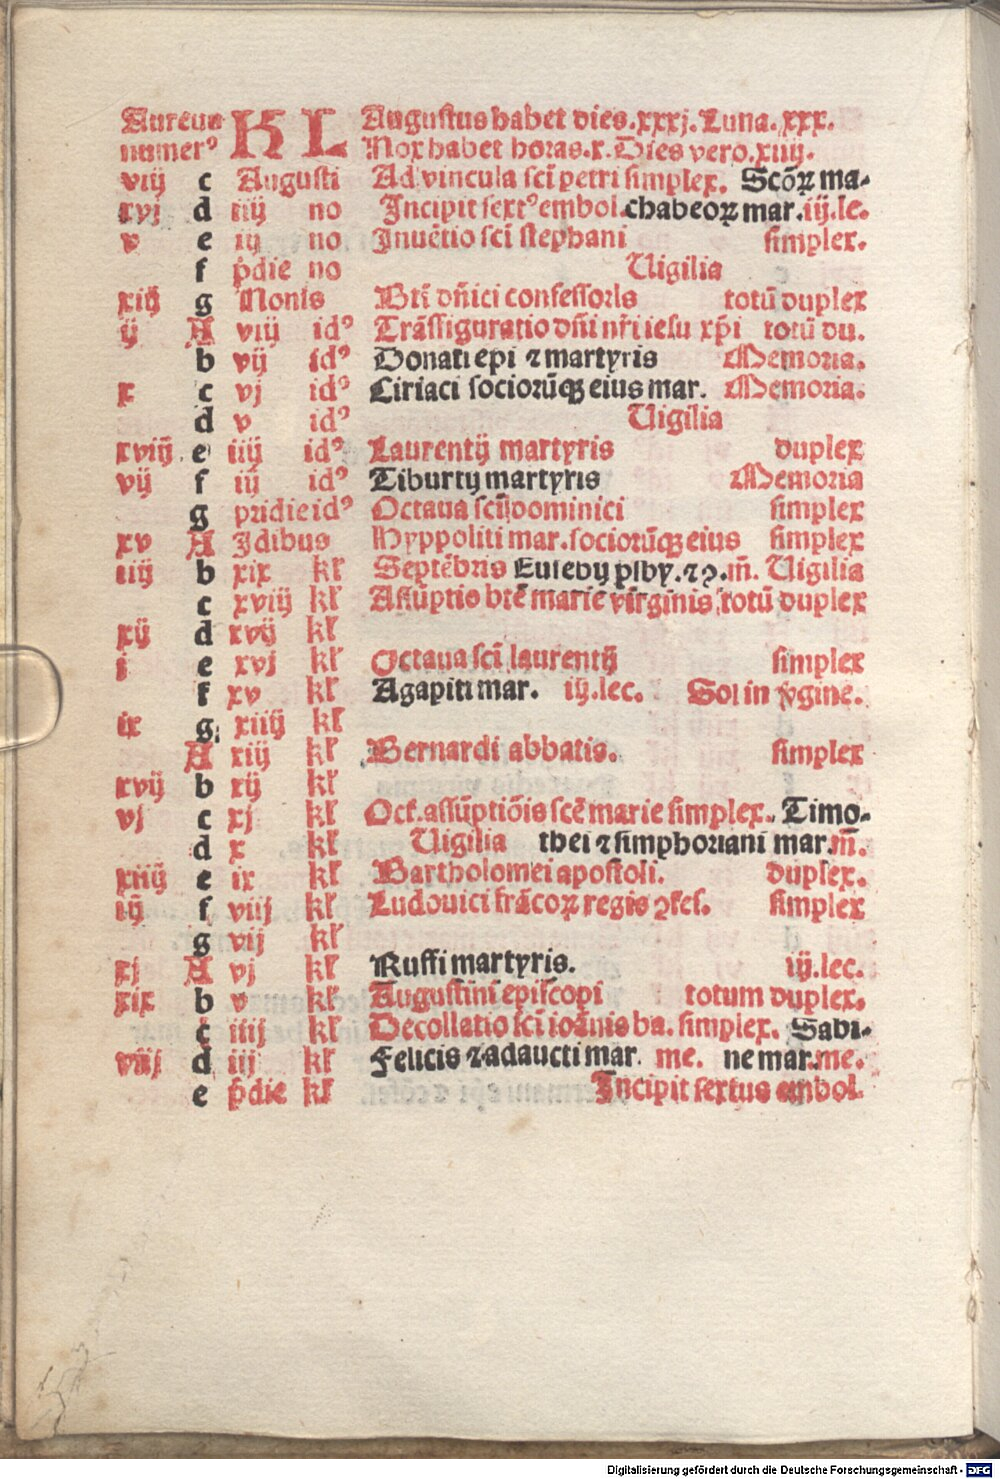 Aureus KL Augustus habet dies.xxxj.Luna.xxx.
numerꝰ Nox habet horas.x.Dies vero.xiiij.
viij c Augusti Ad vincula sci̅ petri simplex. Sco̅ꝝ ma-
xvj d iiij no Incipit sextꝰ embol. chabeoꝝ mar.iij.le.
v e iij no Inue̅tio sci̅ stephani simplex.
f p̅die no Uigilia
xiij g Nonis Bti̅ dn̅ici confessoris totu̅ duplex
ij A viij idꝰ Tra̅ssiguratio dn̅i nr̅i iesu xp̅i totu̅ du.
b vij idꝰ Donati epi ⁊ martyris Memoria.
x c vj idꝰ Ciriaci socioru̅qꝫ eius mar. Memoria.
d v idꝰ Uigilia
xviij e iiij idꝰ Laurentij martyris duplex
vij f iij idꝰ Tiburtij martyris Memoria
g pridie idꝰ Octaua sci̅ dominici simplex
xv A Idibus Hyppoliti mar.socioru̅qꝫ eius simplex
iiij b xix kł Septe̅bris Eusebij psby.⁊ ꝯ.m̅. Uigilia
c xviij kł Assu̅ptio bte̅ marie virginis totu̅ duplex
xij d xvij kł
j e xvj kł Octaua sci̅ laurentij simplex
f xv kł Agapiti mar. iij.lec. Sol in v̅gine.
ix g xiiij kł
A xiij kł Bernardi abbatis. simplex
xvij b xij kł
vj c xj kł Oct.assu̅ptio̅is sce̅ marie simplex. Timo-
d x kł Uigilia thei ⁊ simphoriani mar.m̅.
xiiij e ix kł Bartholomei apostoli. duplex.
iij f viij kł Ludouici fra̅coꝝ regis ꝯfes. simplex
g vij kł
xj A vj kł Ruffi martyris. iij.lec.
xix b v kł Augustini episcopi totum duplex.
c iiij kł Decollatio sci̅ ioa̅nis ba. simplex. Sabi-
viij d iij kł Felicis ⁊ adaucti mar. me. ne mar.me.
e p̅die kł Incipit sextus embol.
Digitalisierung gefördert durch die Deutsche Forschungsgemeinschaft - DFG